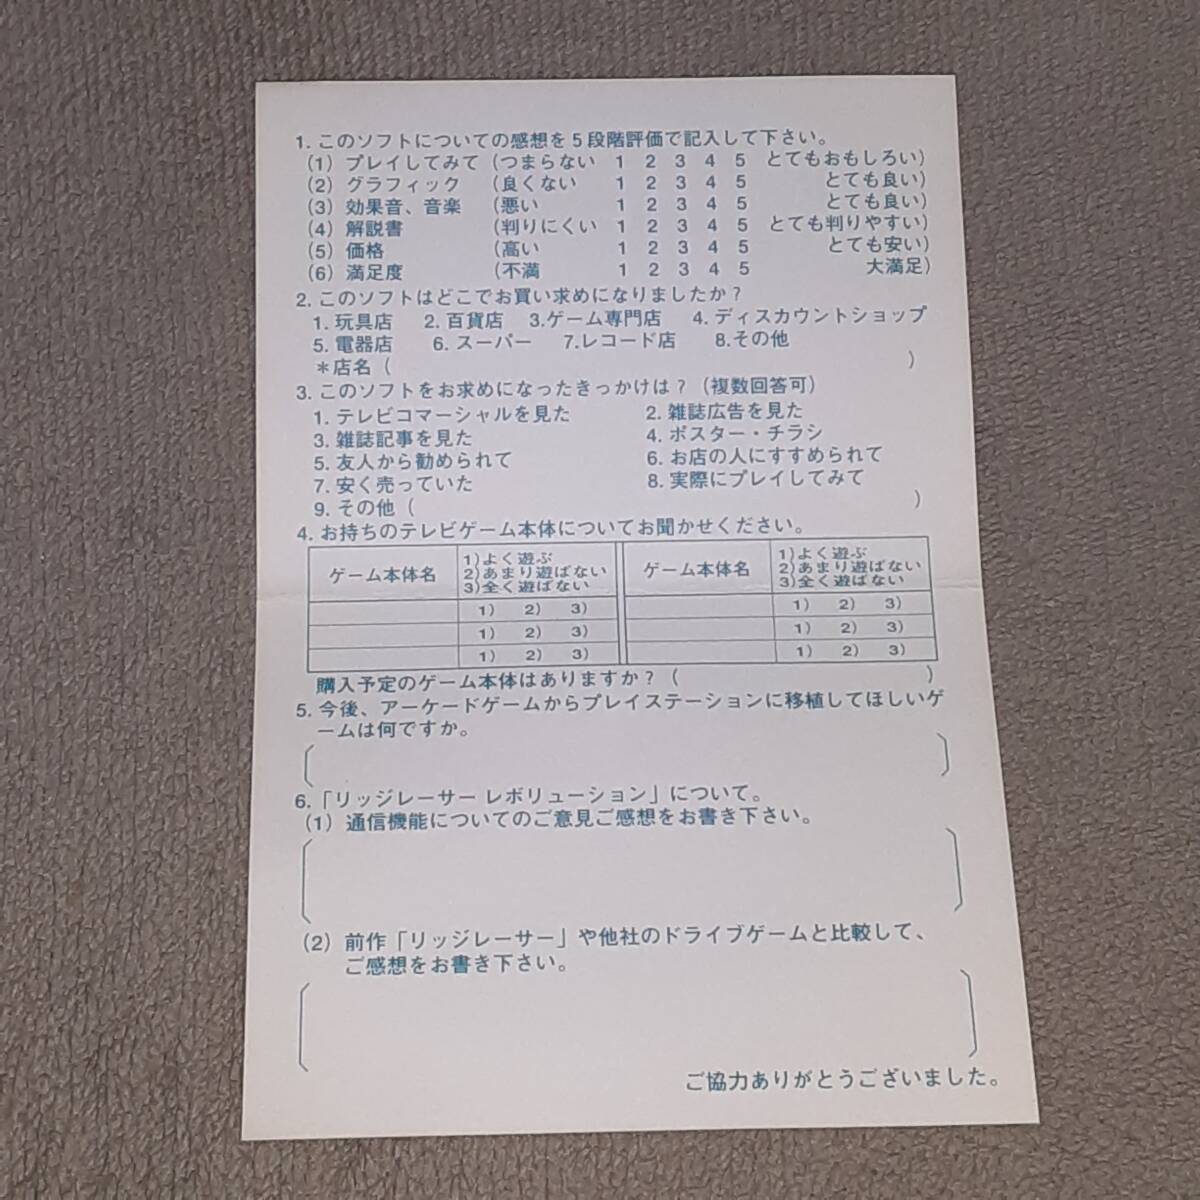 1. このソフトについての感想を5段階評価で記入して下さい。
(1) プレイしてみて (つまらない 1 2 3 4 5 とてもおもしろい)
(2) グラフィック (良くない 1 2 3 4 5 とても良い)
(3) 効果音、音楽 (悪い 1 2 3 4 5 とても良い)
(4) 解説書 (判りにくい 1 2 3 4 5 とても判りやすい)
(5) 価格 (高い 1 2 3 4 5 とても安い)
(6) 満足度 (不満 1 2 3 4 5 大満足)
2. このソフトはどこでお買い求めになりましたか?
1. 玩具店 2. 百貨店 3.ゲーム専門店 4. ディスカウントショップ
5. 電器店 6. スーパー 7.レコード店 8.その他
*店名( )
3. このソフトをお求めになったきっかけは?(複数回答可)
1. テレビコマーシャルを見た 2. 雑誌広告を見た
3. 雑誌記事を見た 4. ポスター・チラシ
5. 友人から勧められて 6. お店の人にすすめられて
7. 安く売っていた 8. 実際にプレイしてみて
9. その他( )
4. お持ちのテレビゲーム本体についてお聞かせください。
ゲーム本体名 1)よく遊ぶ 2)あまり遊ばない 3)全く遊ばない ゲーム本体名 1)よく遊ぶ 2)あまり遊ばない 3)全く遊ばない
1) 2) 3) 1) 2) 3)
1) 2) 3) 1) 2) 3)
1) 2) 3) 1) 2) 3)
購入予定のゲーム本体はありますか?( )
5. 今後、アーケードゲームからプレイステーションに移植してほしいゲ
ームは何ですか。
6.「リッジレーサー レボリューション」について。
(1) 通信機能についてのご意見ご感想をお書き下さい。
(2) 前作「リッジレーサー」や他社のドライブゲームと比較して、
ご感想をお書き下さい。
ご協力ありがとうございました。